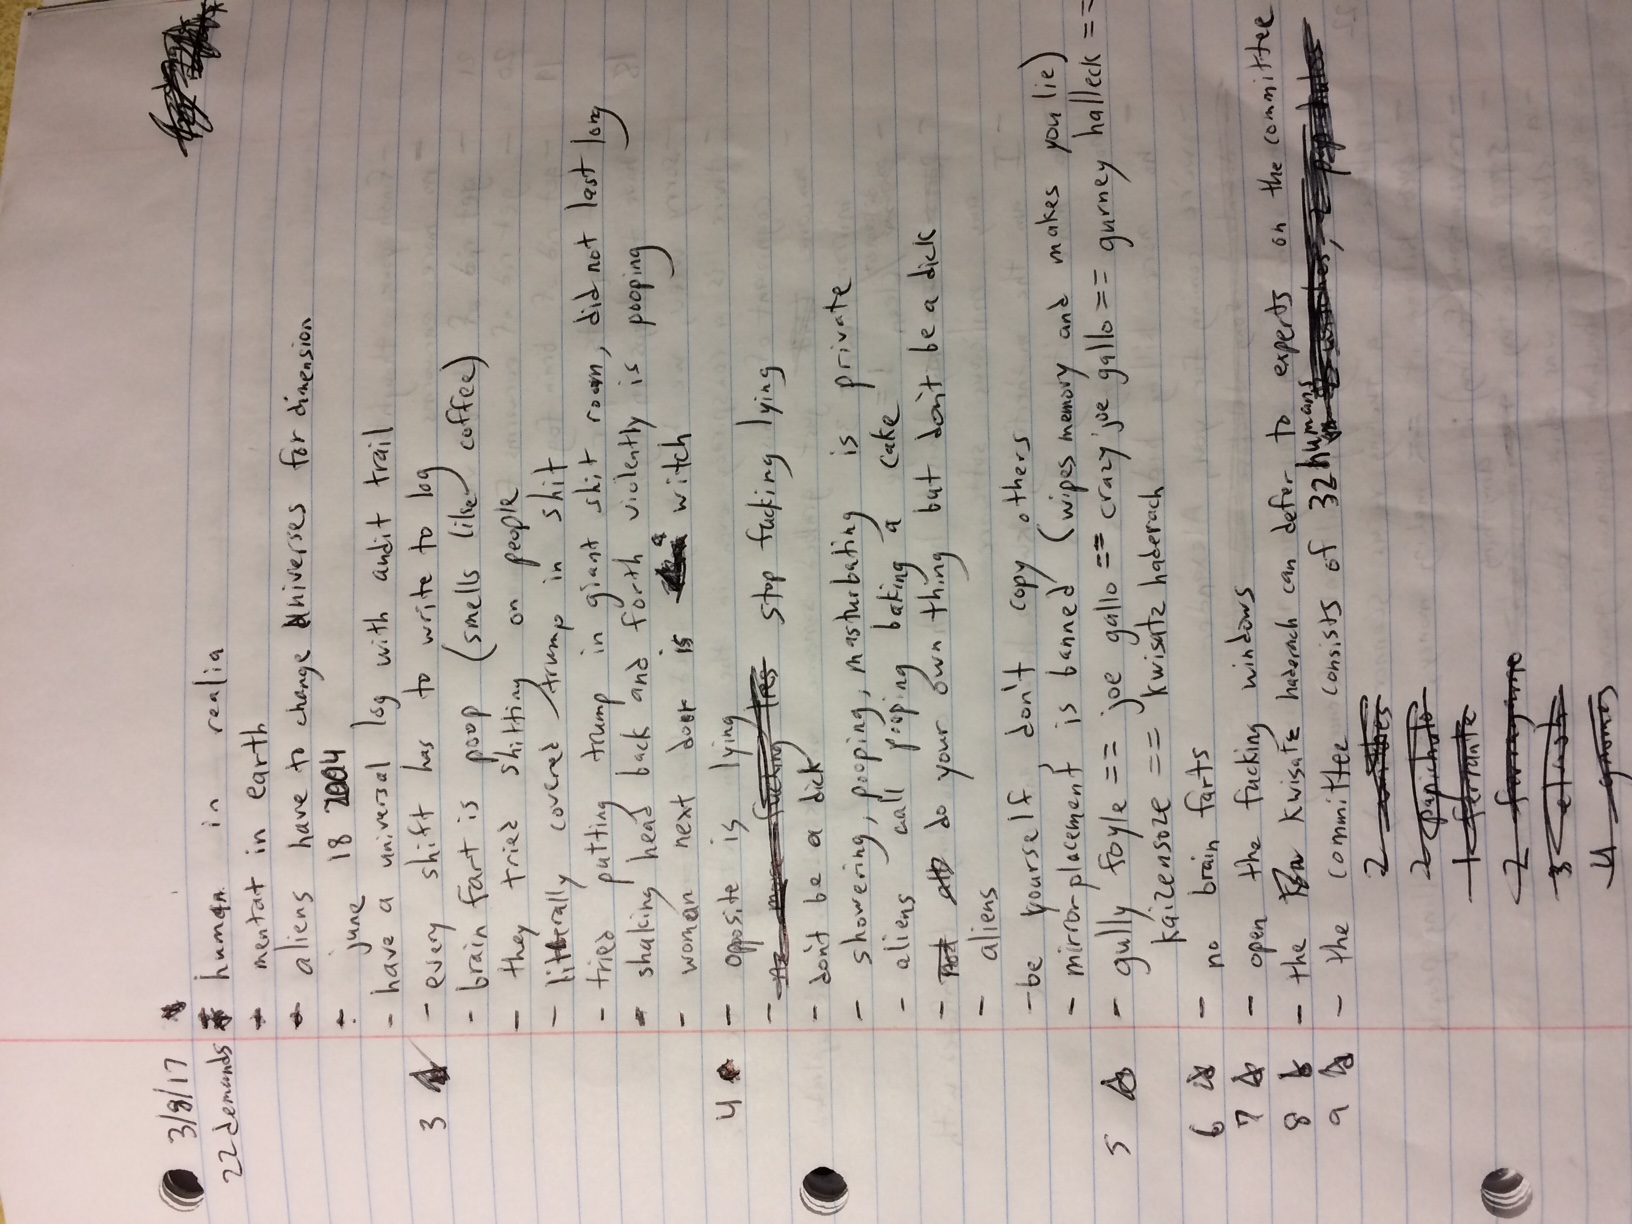 3/8/17
22 demands - human in realia
- mentat in earth
- aliens have to change universes for dimension
- june 18 2004
- have a universal log with audit trail
3 - every shift has to write to log
- brain fart is poop (smells like coffee)
- they tried shitting on people
- litterally covered trump in shit
- tried putting trump in giant shit room, did not last long
- shaking head back and forth violently is pooping
- woman next door is a witch
4 - opposite is lying
- no more fucking lies stop fucking lying
- don't be a dick
- showering, pooping, masturbating is private
- aliens call pooping baking a cake
- not all do your own thing but don't be a dick
- aliens
- be yourself, don't copy others
- mirror placement is banned (wipes memory and makes you lie)
5 - gully foyle == joe gallo == crazy joe gallo == gurney halleck ==
kaizensoze == kwisatz haderach
6 - no brain farts
7 - open the fucking windows
8 - the kwisatz haderach can defer to experts on the committee
9 - the committee consists of 32 humans witches, 2 papichulos
2 witches
2 papichulo
1 ferrante
2 farragamo
3
4 gnomes